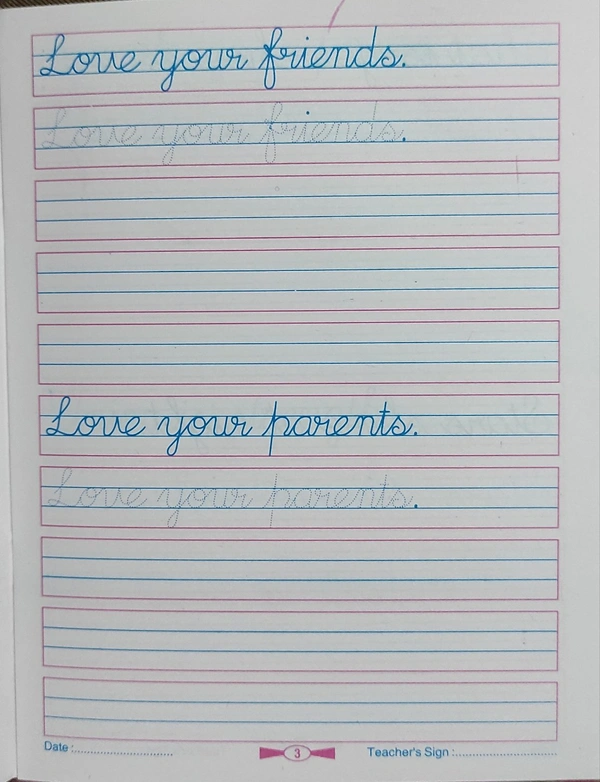 Love your friends.
Love your friends.
Love your parents.
Love your parents.
Date :............................
3
Teacher's Sign :............................